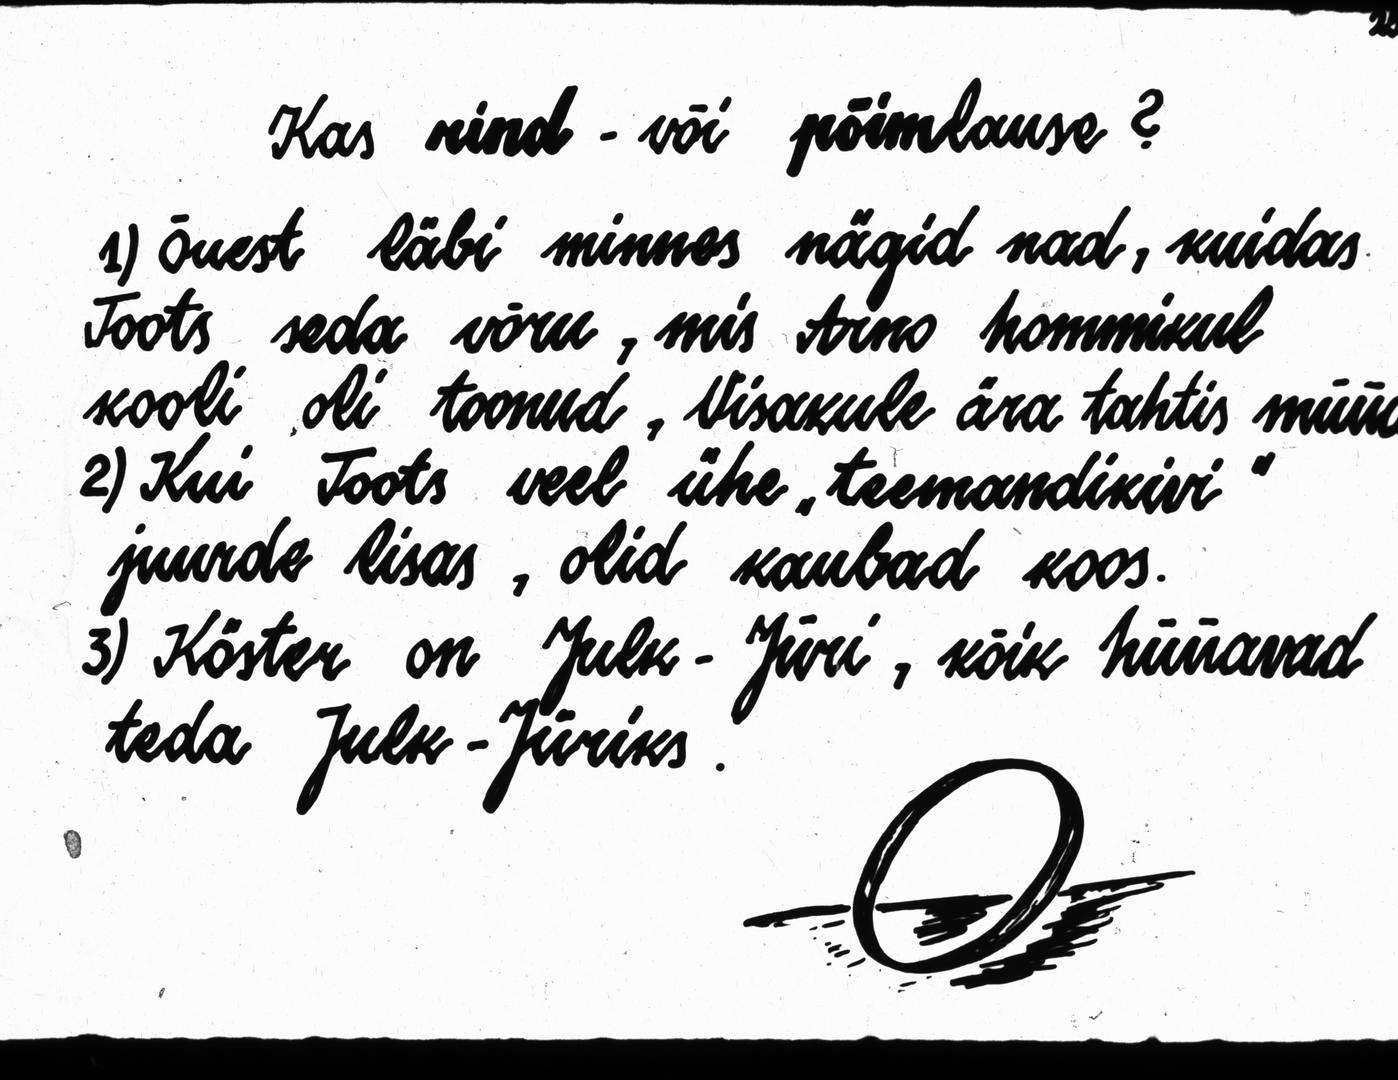 Kas rind - või põimlause?
1) Õuest läbi minnes nägid nad, kuidas
Toots seda võru, mis Arno hommikul
kooli oli toonud, Visakule ära tahtis
2) Kui Toots veel ühe „teemandikivi“
juurde lisas, olid kaubad koos.
3) Köster on Julk-Jüri, kõik hüüavad
teda Julk-Jüriks.